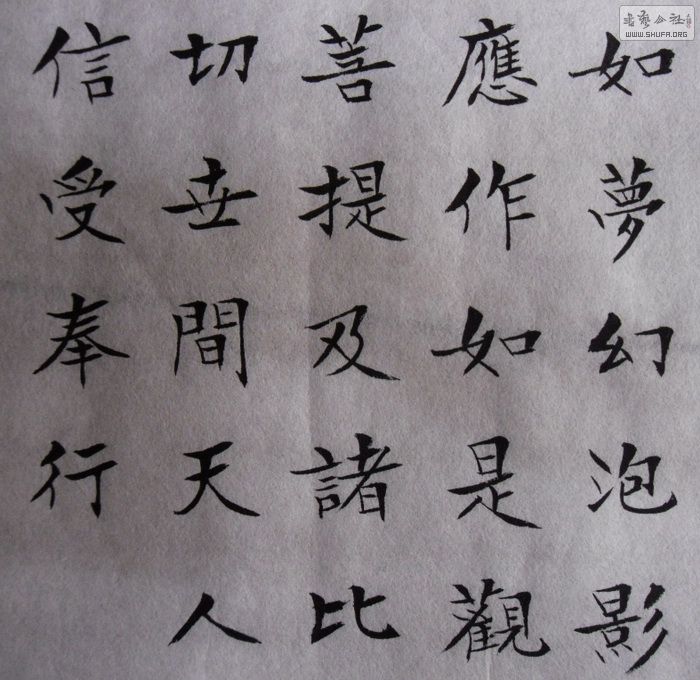 如夢幻泡影
應作如是觀
菩提及諸比
切世間天人
信受奉行
書藝公社
WWW.SHUFA.ORG